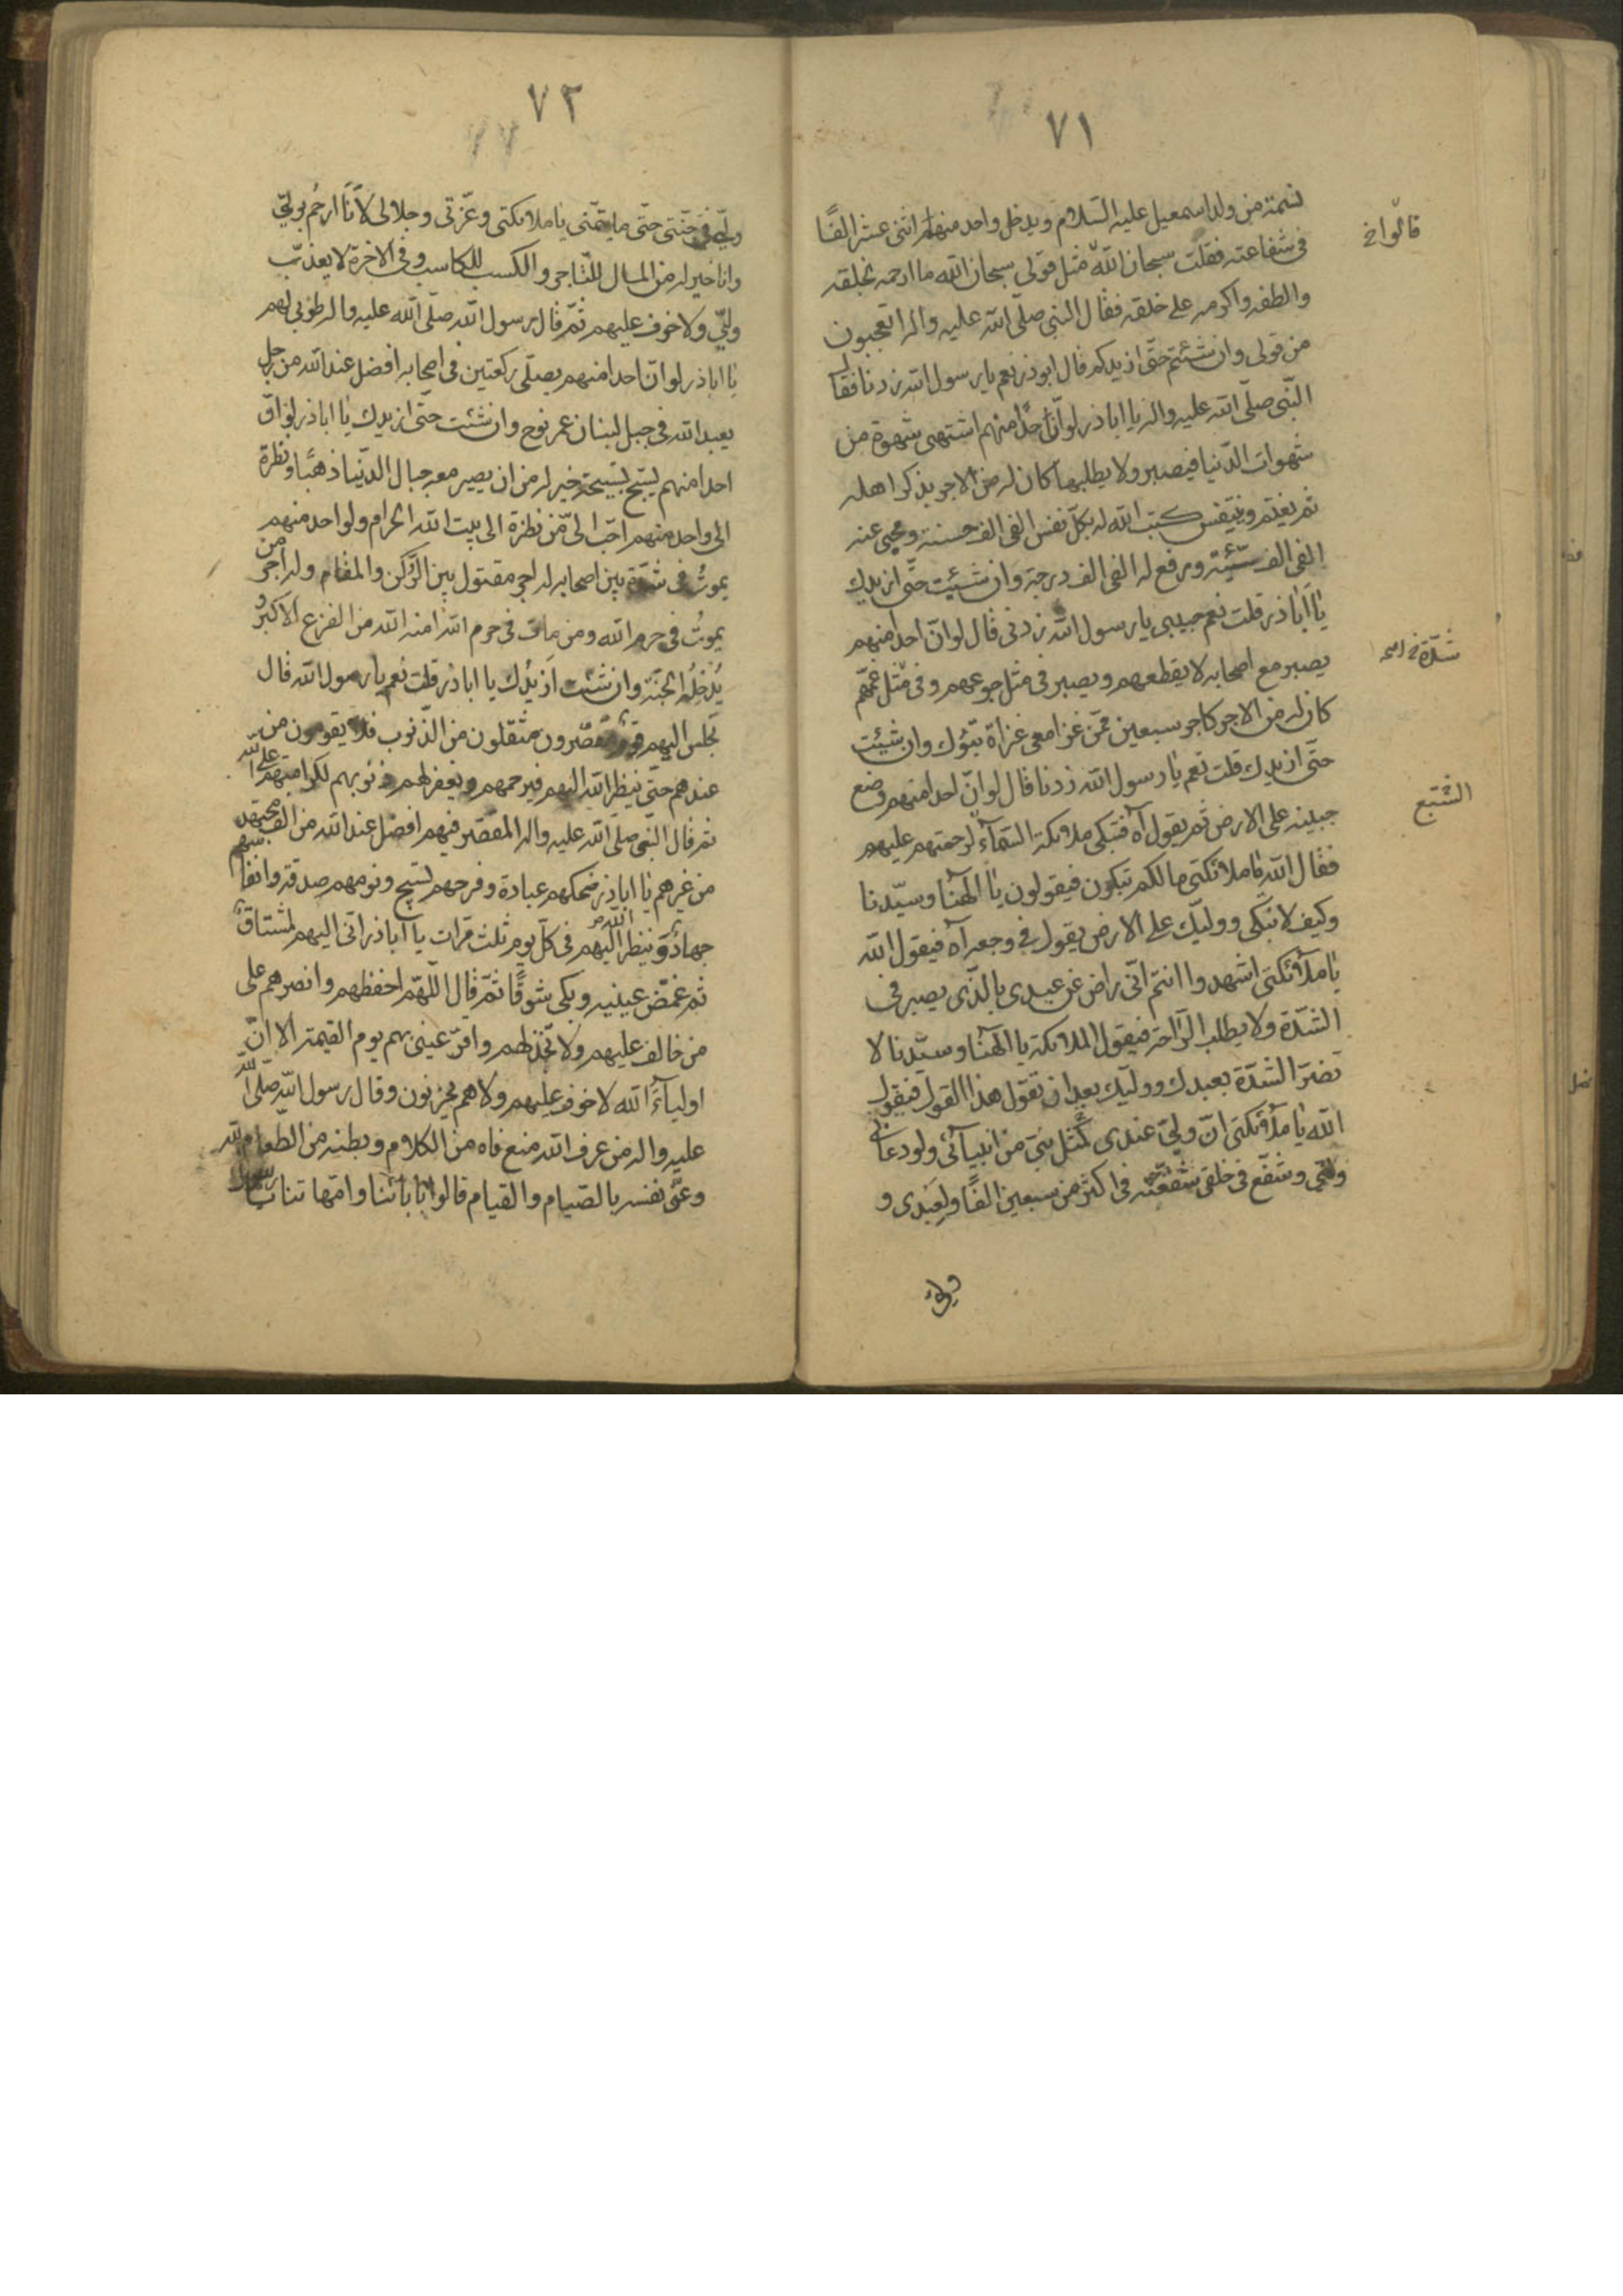 ٧١
نسمة من ولد اسمعيل عليه السّلام ويدخل واحد منهم اثنى عشر الفًا
فى شفاعته فقلت سبحان اللّه مثل قولى سبحان اللّه ما ارحمه بخلقه
والطفه واكرمه على خلقه فقال النبى صلّى اللّه عليه واله اتعجبون
من قولى وان شئتم حتّى ازيدكم قال ابوذر نعم يا رسول اللّه زدنا فقال
النّبى صلّى اللّه عليه واله يا اباذر لوانّ احدًا منهم اشتهى شهوة من
شهوات الدّنيا فيصبر ولا يطلبها كان له من الاجر بذكر اهله
ثم يغتم ويتنفس كتب اللّه له بكلّ نفس الفى الف حسنة ومحى عنه
الفى الف سيّئة ورفع له الفى الف درجة وان شئت حتّى ازيدك
يا اباذر قلت نعم حبيبى يا رسول اللّه زدنى قال لوانّ احدا منهم
يصبر مع اصحابه لا يقطعهم ويصبر فى مثل جوعهم وفى مثل غمّهم
كان له من الاجر كاجر سبعين ممّن غزا معى غزاة تبوك وان شئت
حتّى ازيدك قلت نعم يا رسول اللّه زدنا قال لوانّ احدا منهم وضع
جبينه على الارض ثم يقول آه فتبكى ملائكة السّمآء لرحمتهم عليهم
فقال اللّه يا ملائكتى مالكم تبكون فيقولون يا الهنا وسيّدنا
وكيف لا نبكى ووليّك على الارض يقول فى وجعه آه فيقول اللّه
يا ملائكتى اشهدوا انتم انّى راض عن عبدى بالّذى يصبر فى
الشدّة ولا يطلب الرّاحة فيقول الملائكة يا الهنا وسيّدنا لا
تضرّ الشدّة بعبدك ووليّك بعد ان تقول هذا القول فيقول
اللّه يا ملائكتى انّ وليّى عندى كمثل نبىّ من انبيآئى ولو دعانى
وليّى وشفّع فى خلقى شفّعته فى اكثر من سبعين الفًا ولعبدى و
قالوا خ
شدّة فى
الشبع
٧٢
وليّى فى جنّتى حتّى ما يتمنّى يا ملائكتى وعزّتى وجلالى لأنا ارحم بوليّى
وانا خير له من المال للتّاجر والكسب للكاسب وفى الاخرة لا يعذّب
وليّى ولا خوف عليهم ثمّ قال رسول اللّه صلّى اللّه عليه واله طوبى لهم
يا اباذر لو انّ احدا منهم يصلّى ركعتين فى اصحابه افضل عند اللّه من رجل
يعبد اللّه فى جبل لبنان عمر نوح وان شئت حتّى ازيدك يا اباذر لو انّ
احدا منهم يسبّح تسبيحة خير له من ان يصير معه جبال الدّنيا ذهبًا ونظرة
الى واحد منهم احبّ الىّ من نظرة الى بيت اللّه الحرام ولو احد منهم
يموت فى شدّة بين اصحابه له اجر مقتول بين الرّكن والمقام وله اجر من
يموت فى حرم اللّه ومن مات فى حرم اللّه امنه اللّه من الفزع الاكبر و
يدخله الجنّة وان شئت ازيدك يا اباذر قلت نعم يا رسول اللّه قال
يجلس اليهم قوم مقصّرون مثقلون من الذّنوب فلا يقومون من
عندهم حتّى ينظر اللّه اليهم فيرحمهم ويغفر لهم ذنوبهم لكرامتهم على اللّه
ثم قال النّبى صلّى اللّه عليه واله المقصّر فيهم افضل عند اللّه من الف مجتهد
من غيرهم يا اباذر ضحكهم عبادة وفرحهم تسبيح ونومهم صدقة وانفاسهم
جهاد وينظر اللّه اليهم فى كلّ يوم ثلث مرّات يا اباذر انّى اليهم لمشتاق
ثم غمّض عينيه وبكى شوقًا ثمّ قال اللّهمّ احفظهم وانصرهم على
من خالف عليهم ولا تخذلهم واقرّ عينى بهم يوم القيمة الا انّ
اوليآء اللّه لا خوف عليهم ولا هم يحزنون وقال رسول اللّه صلّى اللّه
عليه واله من عرف اللّه منع فاه من الكلام وبطنه من الطّعام
وعنّى نفسه بالصّيام والقيام قالوا بابائنا وامّهاتنا يا رسول اللّه